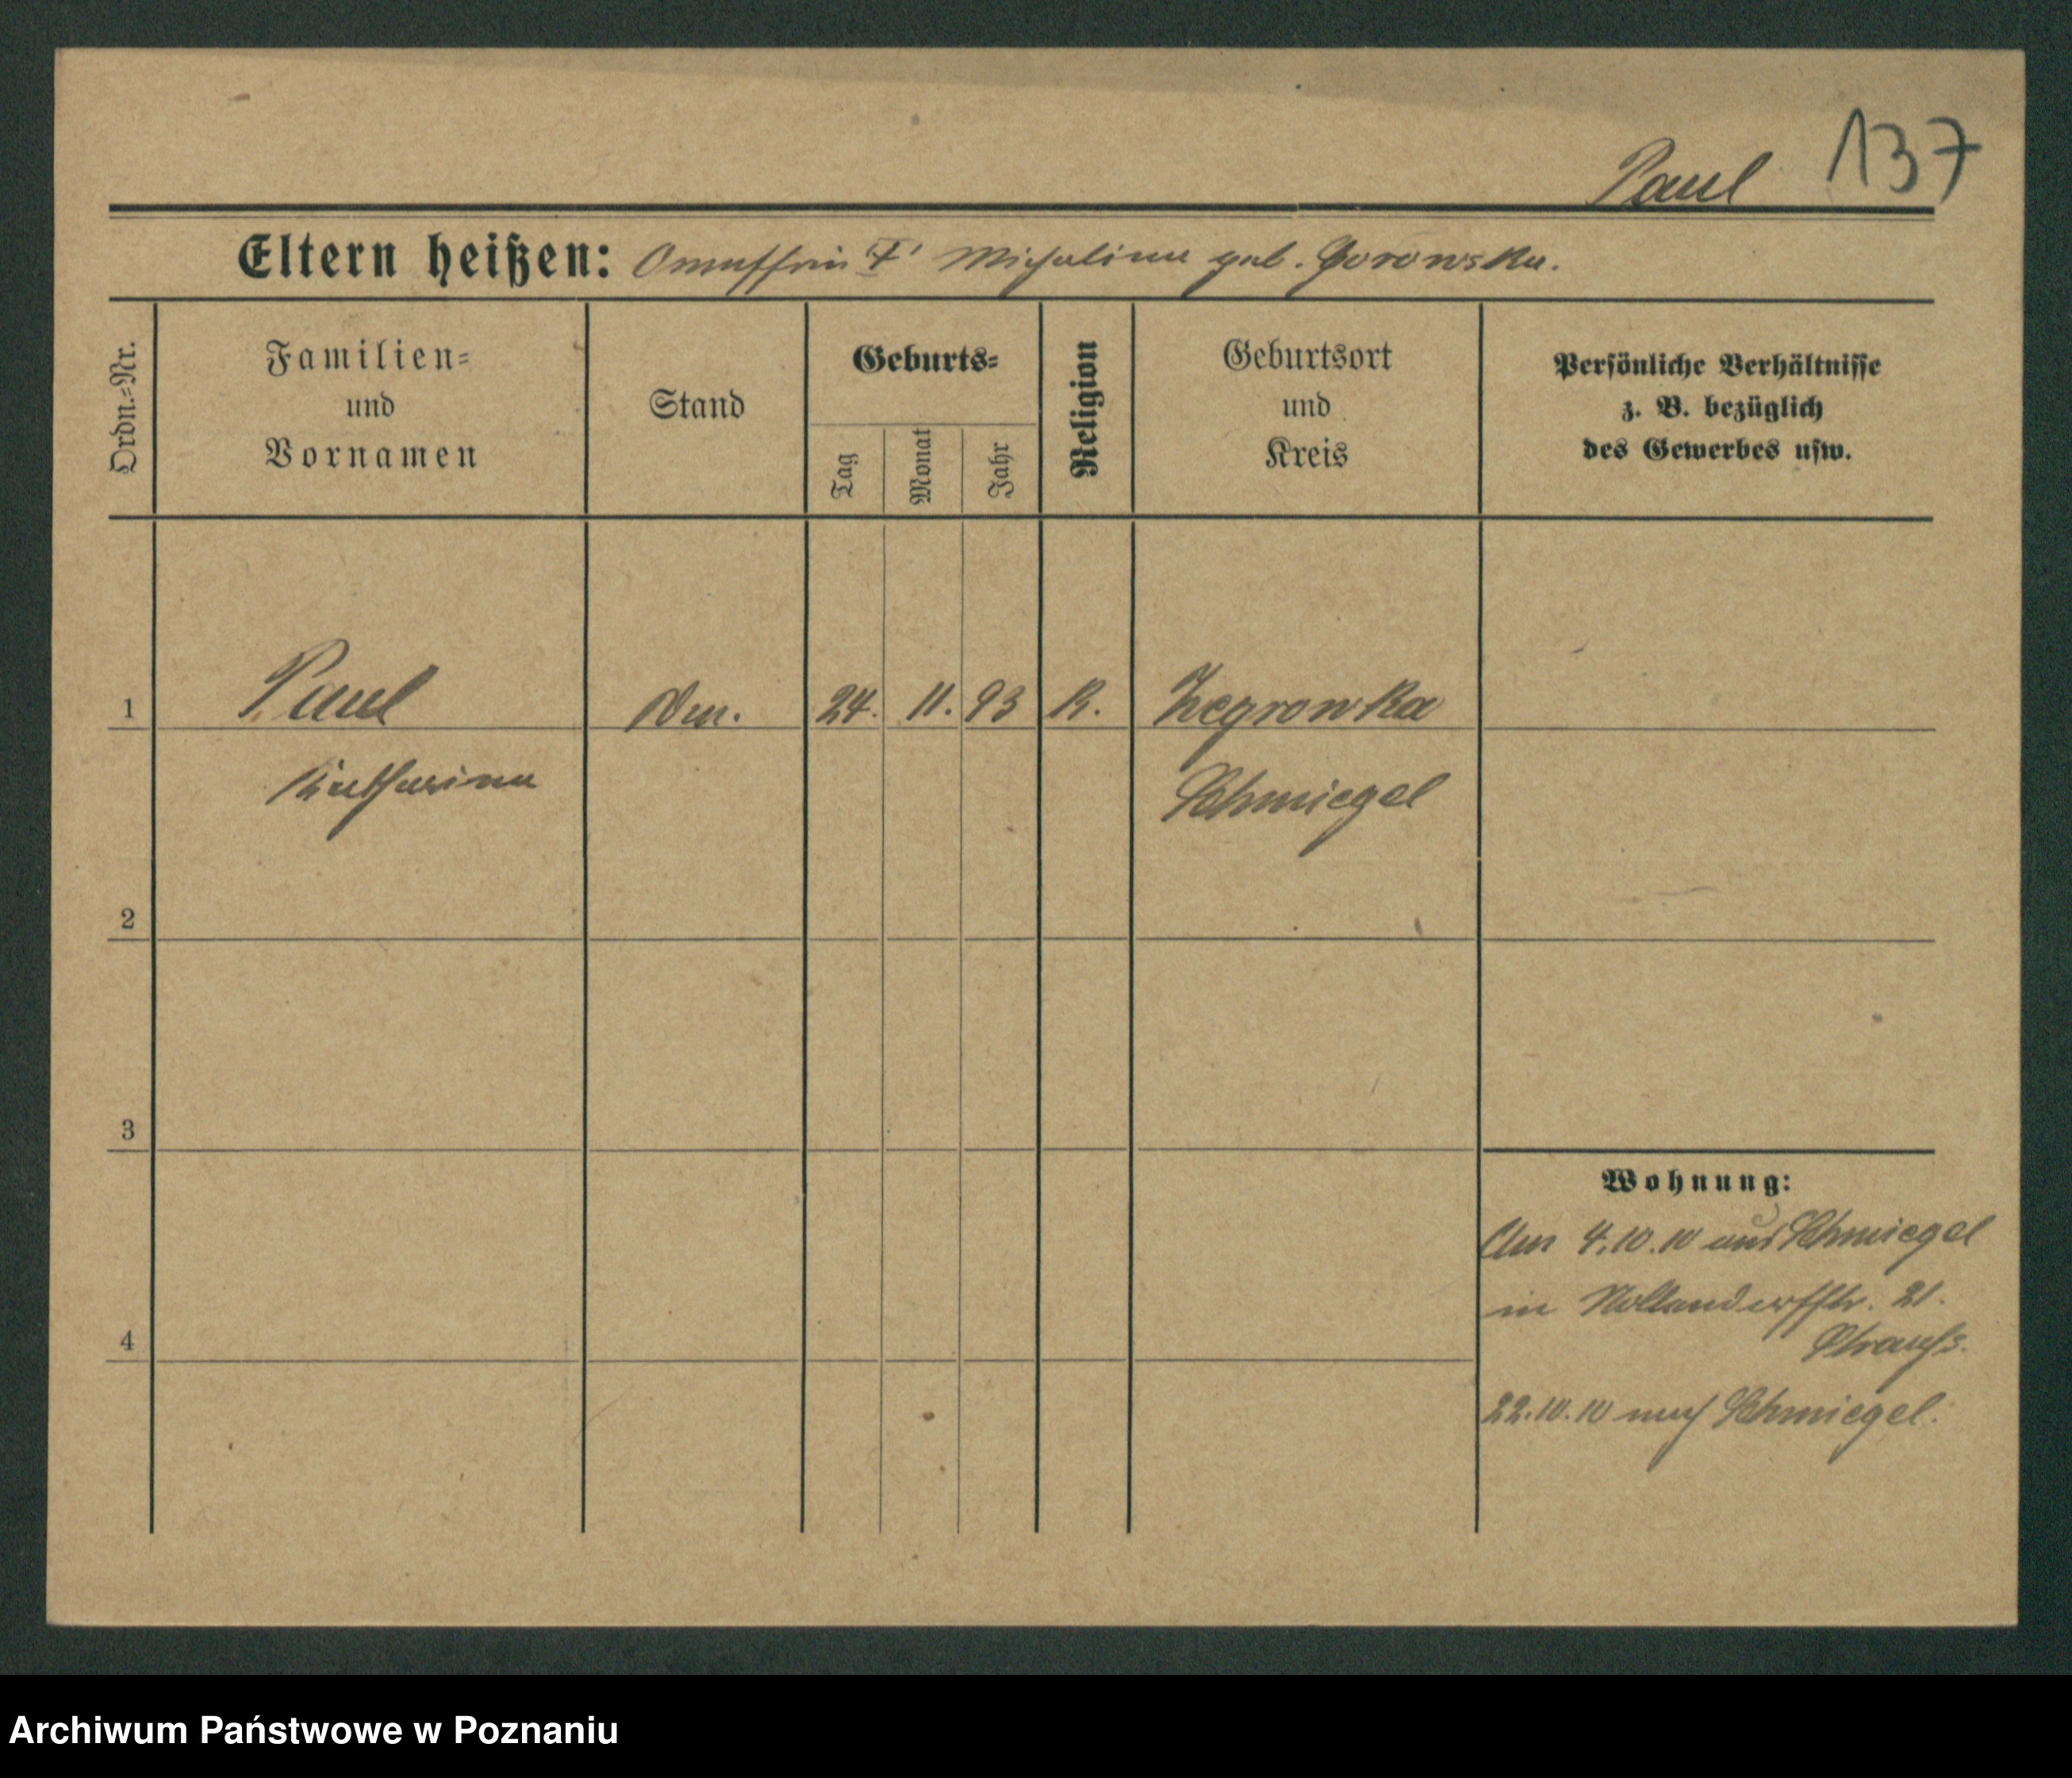 Paul 137
Eltern heißen: Michalina geb. Gorowska.
Ordn.=Nr.
Familien=
und
Vornamen
Stand
Geburts=
Tag
Monat
Jahr
Religion
Geburtsort
und
Kreis
Persönliche Verhältnisse
z. B. bezüglich
des Gewerbes usw.
1 Paul 24. 11. 93 K. Zegrowka
Katharina Schmiegel
2
3
Wohnung:
Am 4.10.10 aus Schmiegel
in Nollendorffstr. 21.
Strauß.
4
22.10.10 nach Schmiegel.
Archiwum Państwowe w Poznaniu